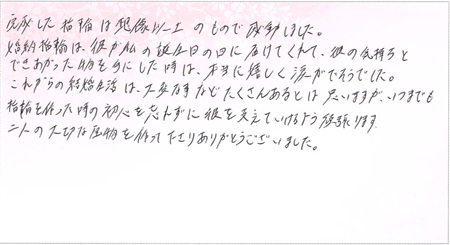 完成した指輪は想像以上のもので感動しました。
婚約指輪は、彼が私の誕生日の日に届けてくれて、彼の気持ちと
できあがった物を手にした時は、本当に嬉しく涙がでそうでした。
これからの結婚生活は、大変な事などたくさんあるとは思いますが、いつまでも
指輪を作った時の初心を忘れずに彼を支えていけるよう頑張ります。
二人の大切な宝物を作って下さりありがとうございました。